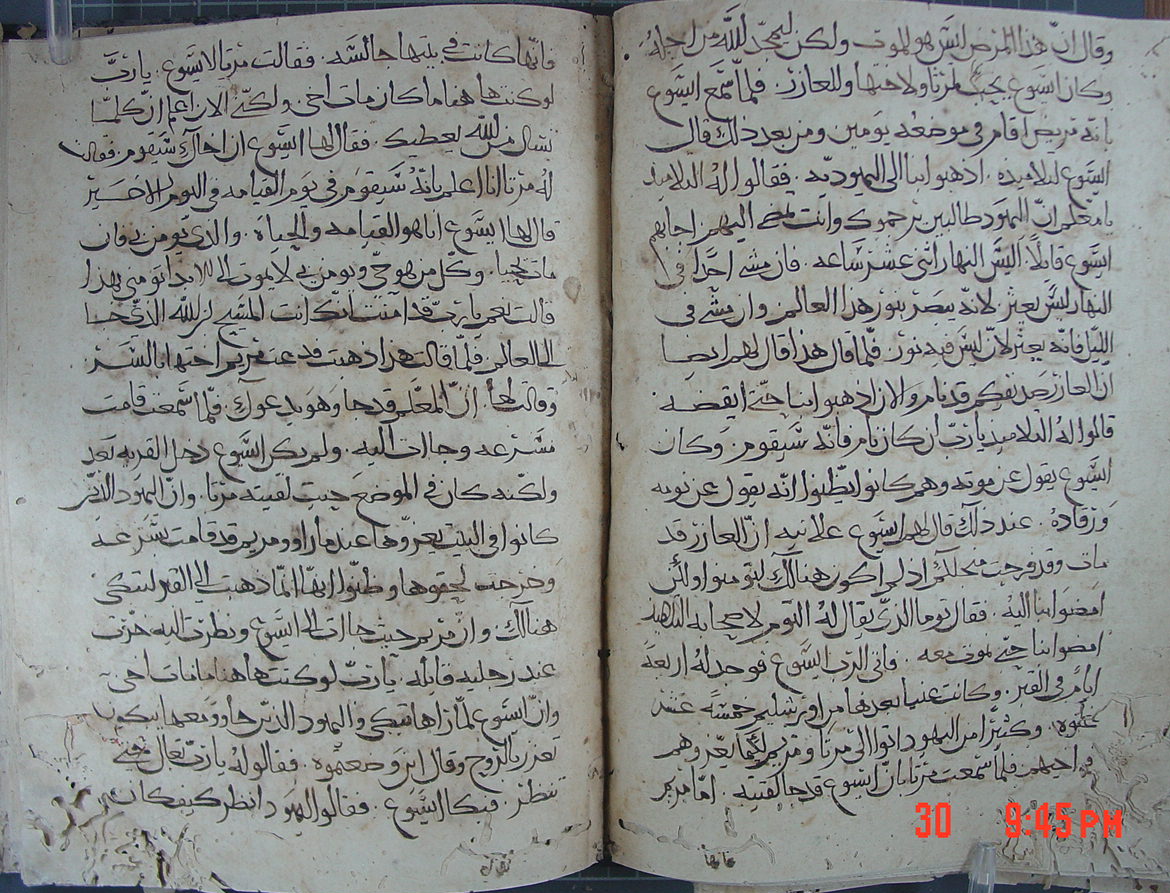 وقال انّ هذا المرض ليس هو للموت ولكن لمجد الله من اجله
وكان ايسوع يحبّ لمرتا ولاختها وللعازر. فلمّا سمع ايسوع
بانّه مريض اقام في موضعه يومين ومن بعد ذلك قال
ايسوع لتلاميذه. اذهبوا بنا الى اليهوديّه. فقالوا له التلاميذ
يا معلم انّ اليهود طالبين يرجموك وانت تمضي اليهم اجابهم
ايسوع قايلًا. اليس النهار اثني عشر ساعه. فان مشى احدًا في
النهار ليس يعثر. لانّه يبصر بنور هذا العالم وان مشى في
الليل فانّه يعثر لانّ ليس فيه نور. فلمّا قال هذا قال لهم ايضا
انّ العازر صديقكم قد نام والان اذهبوا بنا حتّى ايقضه
قالوا له التلاميذ يا ربّ ان كان نام فانّه سيقوم. وكان
ايسوع يقول عن موته وهم كانوا يظنّوا انّه يقول عن نومه
ورقاده. عند ذلك قال لهم ايسوع علانيه انّ العازر قد
مات وقد فرحت منجلكم اذ لم اكون هنالك لتومنوا ولكن
امضوا بنا اليه. فقال توما الذي يقال له التوم لاصحابه التلاميذ
امضوا بنا حتّى نموت معه. فاتى الرب ايسوع فوجد له اربعة
ايام في القبر. وكانت عنيا بعدها من اورشليم خمسة عشر
غلوه. وكثيرًا من اليهود اتوا الى مرتا ومريم لكيما يعزّوهم
في اخيهم. فلمّا سمعت مرتا بانّ ايسوع قد جا لقيته. امّا مريم
فانّها
فانّها كانت في بيتها جالسه. فقالت مرتا لايسوع. يا ربّ
لو كنت ها هنا ما كان مات اخي. ولكنّي الان اعلم انّ كلما
تسال من الله يعطيك. فقال لها ايسوع ان اخاك سيقوم. فقالت
له مرتا انا اعلم بانّه سيقوم في يوم القيامه في اليوم الاخير
قال لها ايسوع انا هو القيامه والحياه. والذي يومن بي فان
مات يحيا. وكلّ من هو حيّ ويومن بي لا يموت الى الابد اتومني بهذا
قالت نعم يا ربّ قد امنت بانك انت المسيح ابن الله الذي جا
الى العالم. فلمّا قالت هذا ذهبت فدعت مريم اختها بالسر
وقالت لها. انّ المعلّم قد جا وهو يدعوك. فلمّا سمعت قامت
مسرعه وجاات اليه. ولم يكن ايسوع دخل القريه بعد
ولكنّه كان في الموضع حيث لقيته مرتا. وانّ اليهود الذين
كانوا في البيت يعزّوها عند ما راوو مريم قد قامت بسرعه
وخرجت لحقوها وظنّوا انّها انّما ذهبت الى القبر لتبكي
هنالك. وانّ مريم حيث جاات الى ايسوع ونظرت اليه خرّت
عند رجليه قايله. يا ربّ لو كنت ها هنا ما مات اخي
وانّ ايسوع لمّا راها تبكي واليهود الذين جاوو معها يبكون
تعزر بالروح وقال اين وضعتموه. فقالوا له يا ربّ تعال حتّى
تنظر. فبكا ايسوع. فقالوا اليهود انظر كيف كان
30 9:45 PM